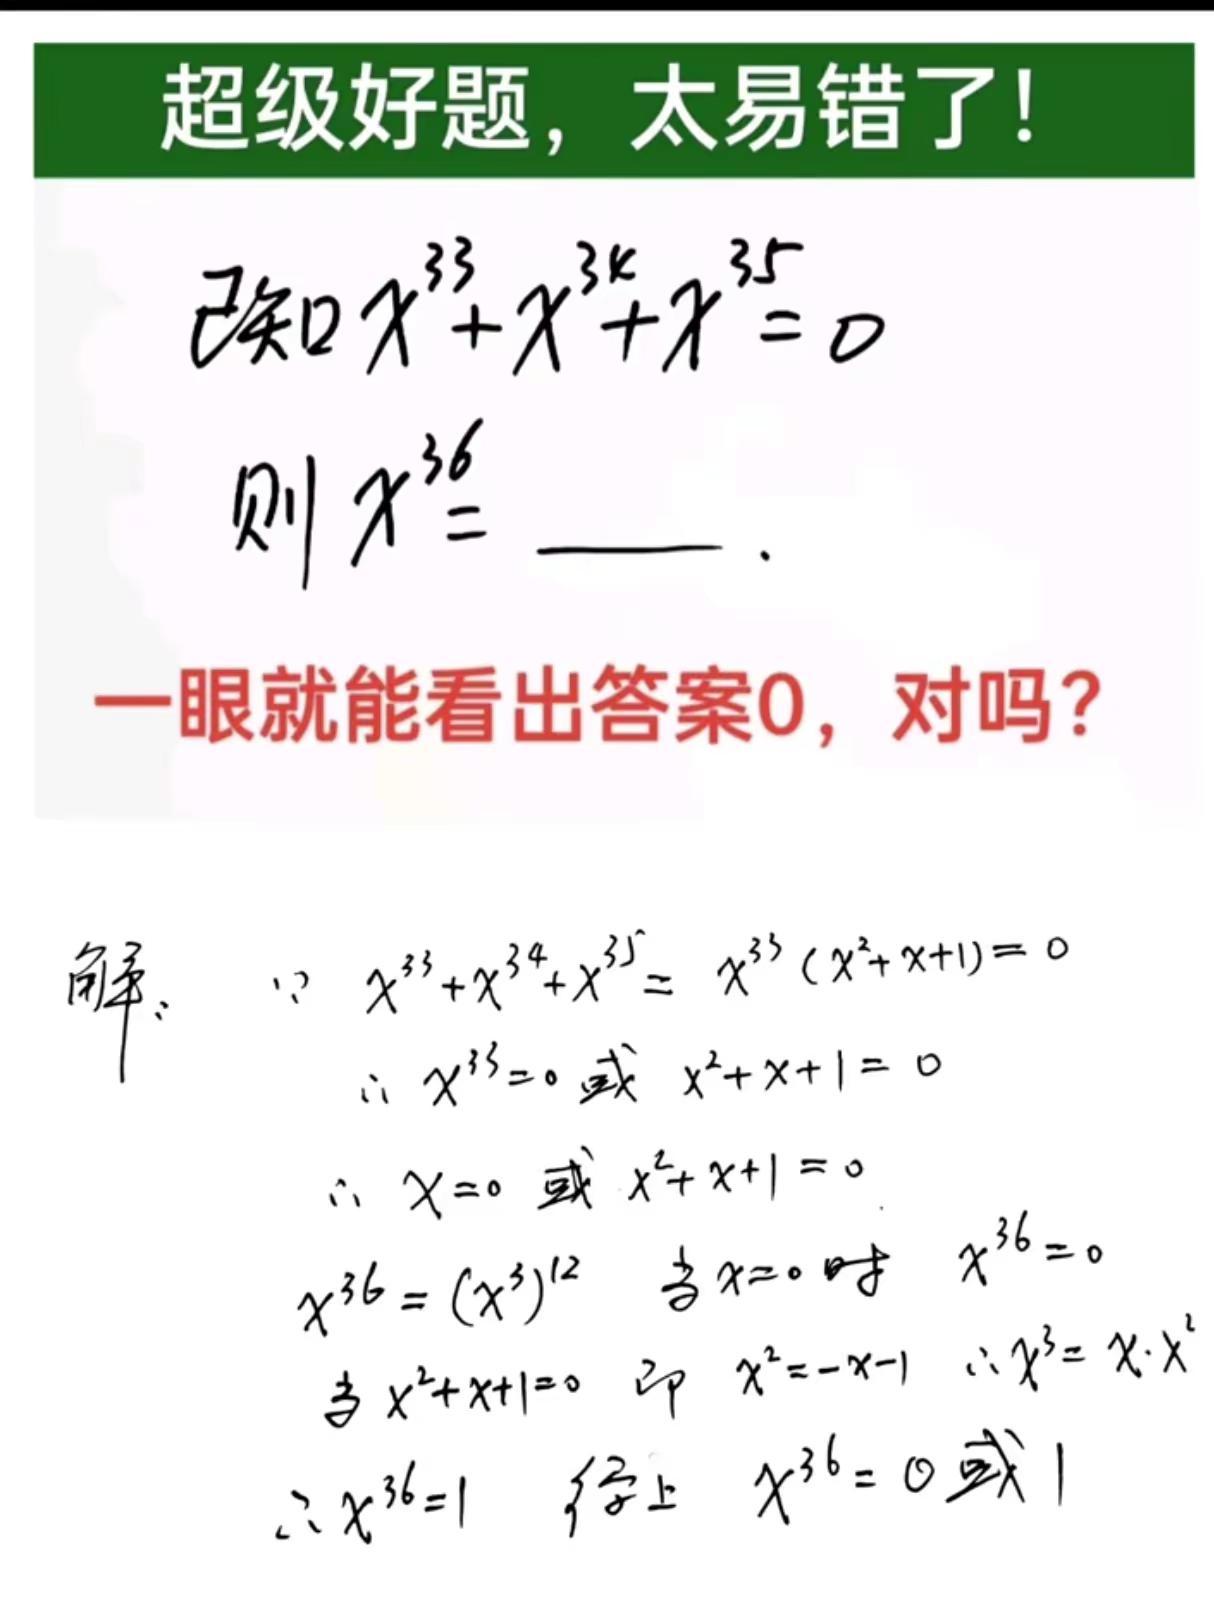 超级好题，太易错了！
已知x³³+x³⁴+x³⁵=0
则x³⁶=____.
一眼就能看出答案0，对吗？
解： ∵ x³³+x³⁴+x³⁵= x³³(x²+x+1)=0
∴ x³³=0 或 x²+x+1=0
∴ x=0 或 x²+x+1=0
x³⁶=(x³)¹² 当x=0时 x³⁶=0
当x²+x+1=0 即 x²=-x-1 ∴x³=x·x²
∴x³⁶=1 综上 x³⁶=0或1